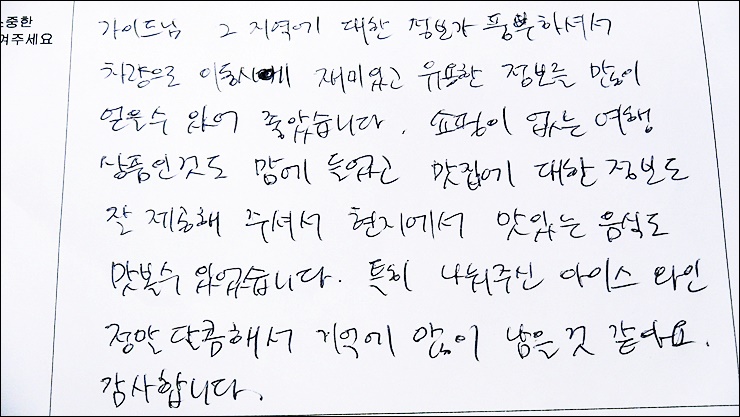 소중한
여주세요
가이드님 그 지역에 대한 정보가 풍부하셔서
차량으로 이동시에 재미있고 유용한 정보를 많이
얻을수 있어 좋았습니다. 쇼핑이 없는 여행
상품인것도 맘에 들었고 맛집에 대한 정보도
잘 제공해 주셔서 현지에서 맛있는 음식도
맛볼수 있었습니다. 특히 나눠주신 아이스 와인
정말 달콤해서 기억에 많이 남을것 같아요.
감사합니다.